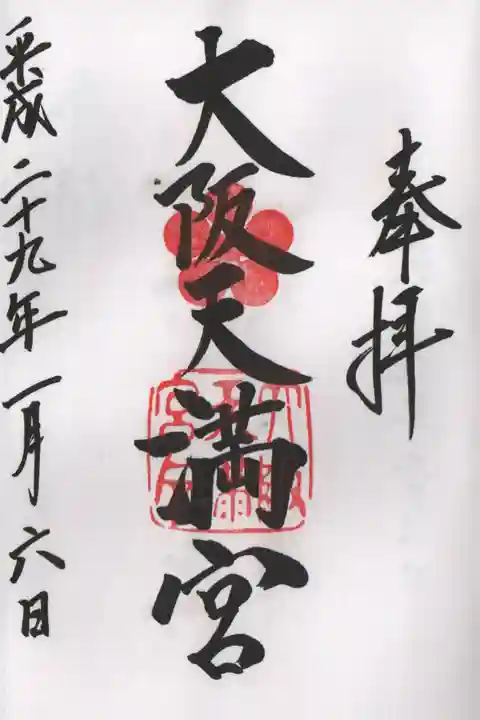 奉拝
大阪天満宮
平成二十九年一月六日